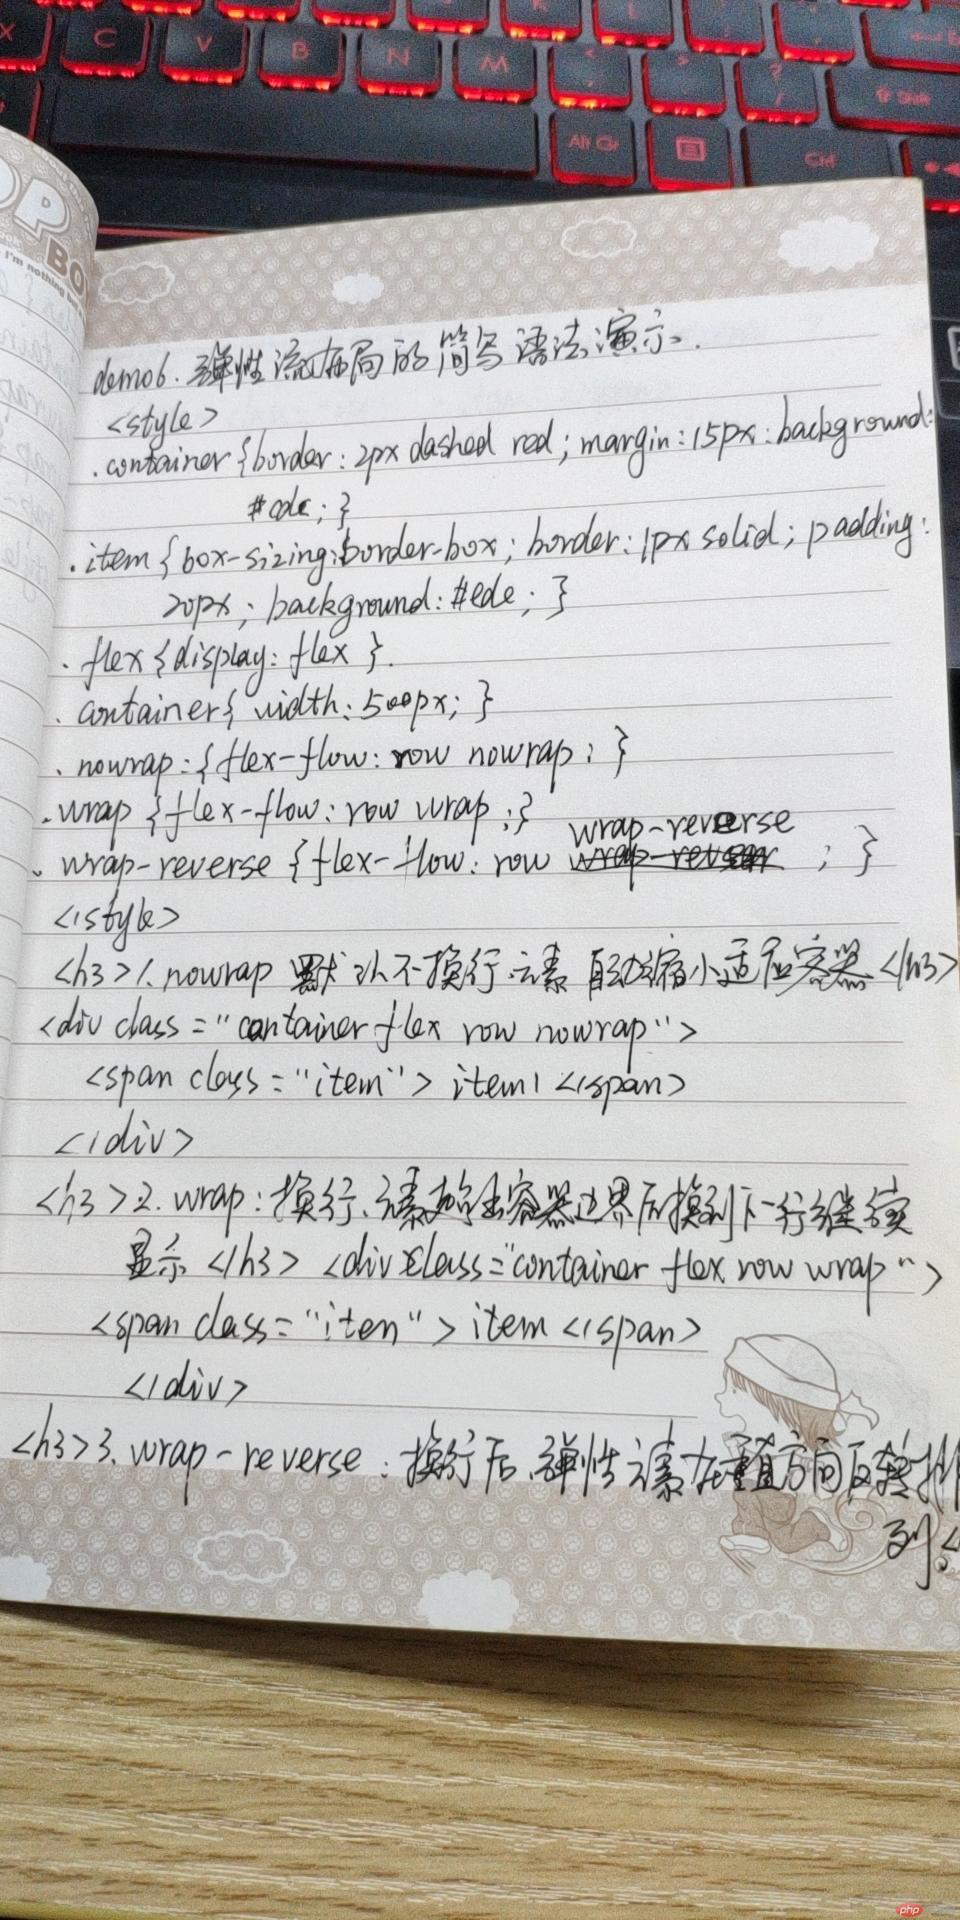 X C V B N M
K L
< ,
> .
? /
Shift
Alt Gr
Ctrl
OP
BO
I'm nothing
demo6.弹性流布局的简写语法演示.
<style>
.container {border: 2px dashed red; margin: 15px: background:
#cdc; }
.item {box-sizing: border-box; border: 1px solid; padding:
20px; background: #ede; }
.flex {display: flex }.
.container{ width: 500px; }
.nowrap: {flex-flow: row nowrap; }
.wrap {flex-flow: row wrap;}
wrap-reverse
.wrap-reverse {flex-flow: row ; }
</style>
<h3>1.nowrap 默认不换行.元素自动缩小适应容器</h3>
<div class="container flex row nowrap">
<span class="item"> item1 </span>
</div>
<h3>2.wrap:换行、元素超出容器边界后换到下一行继续
显示 </h3> <div class="container flex row wrap">
<span class="iten"> item </span>
</div>
<h3>3.wrap-reverse:换行后.弹性元素在垂直方向反转排
列<
php